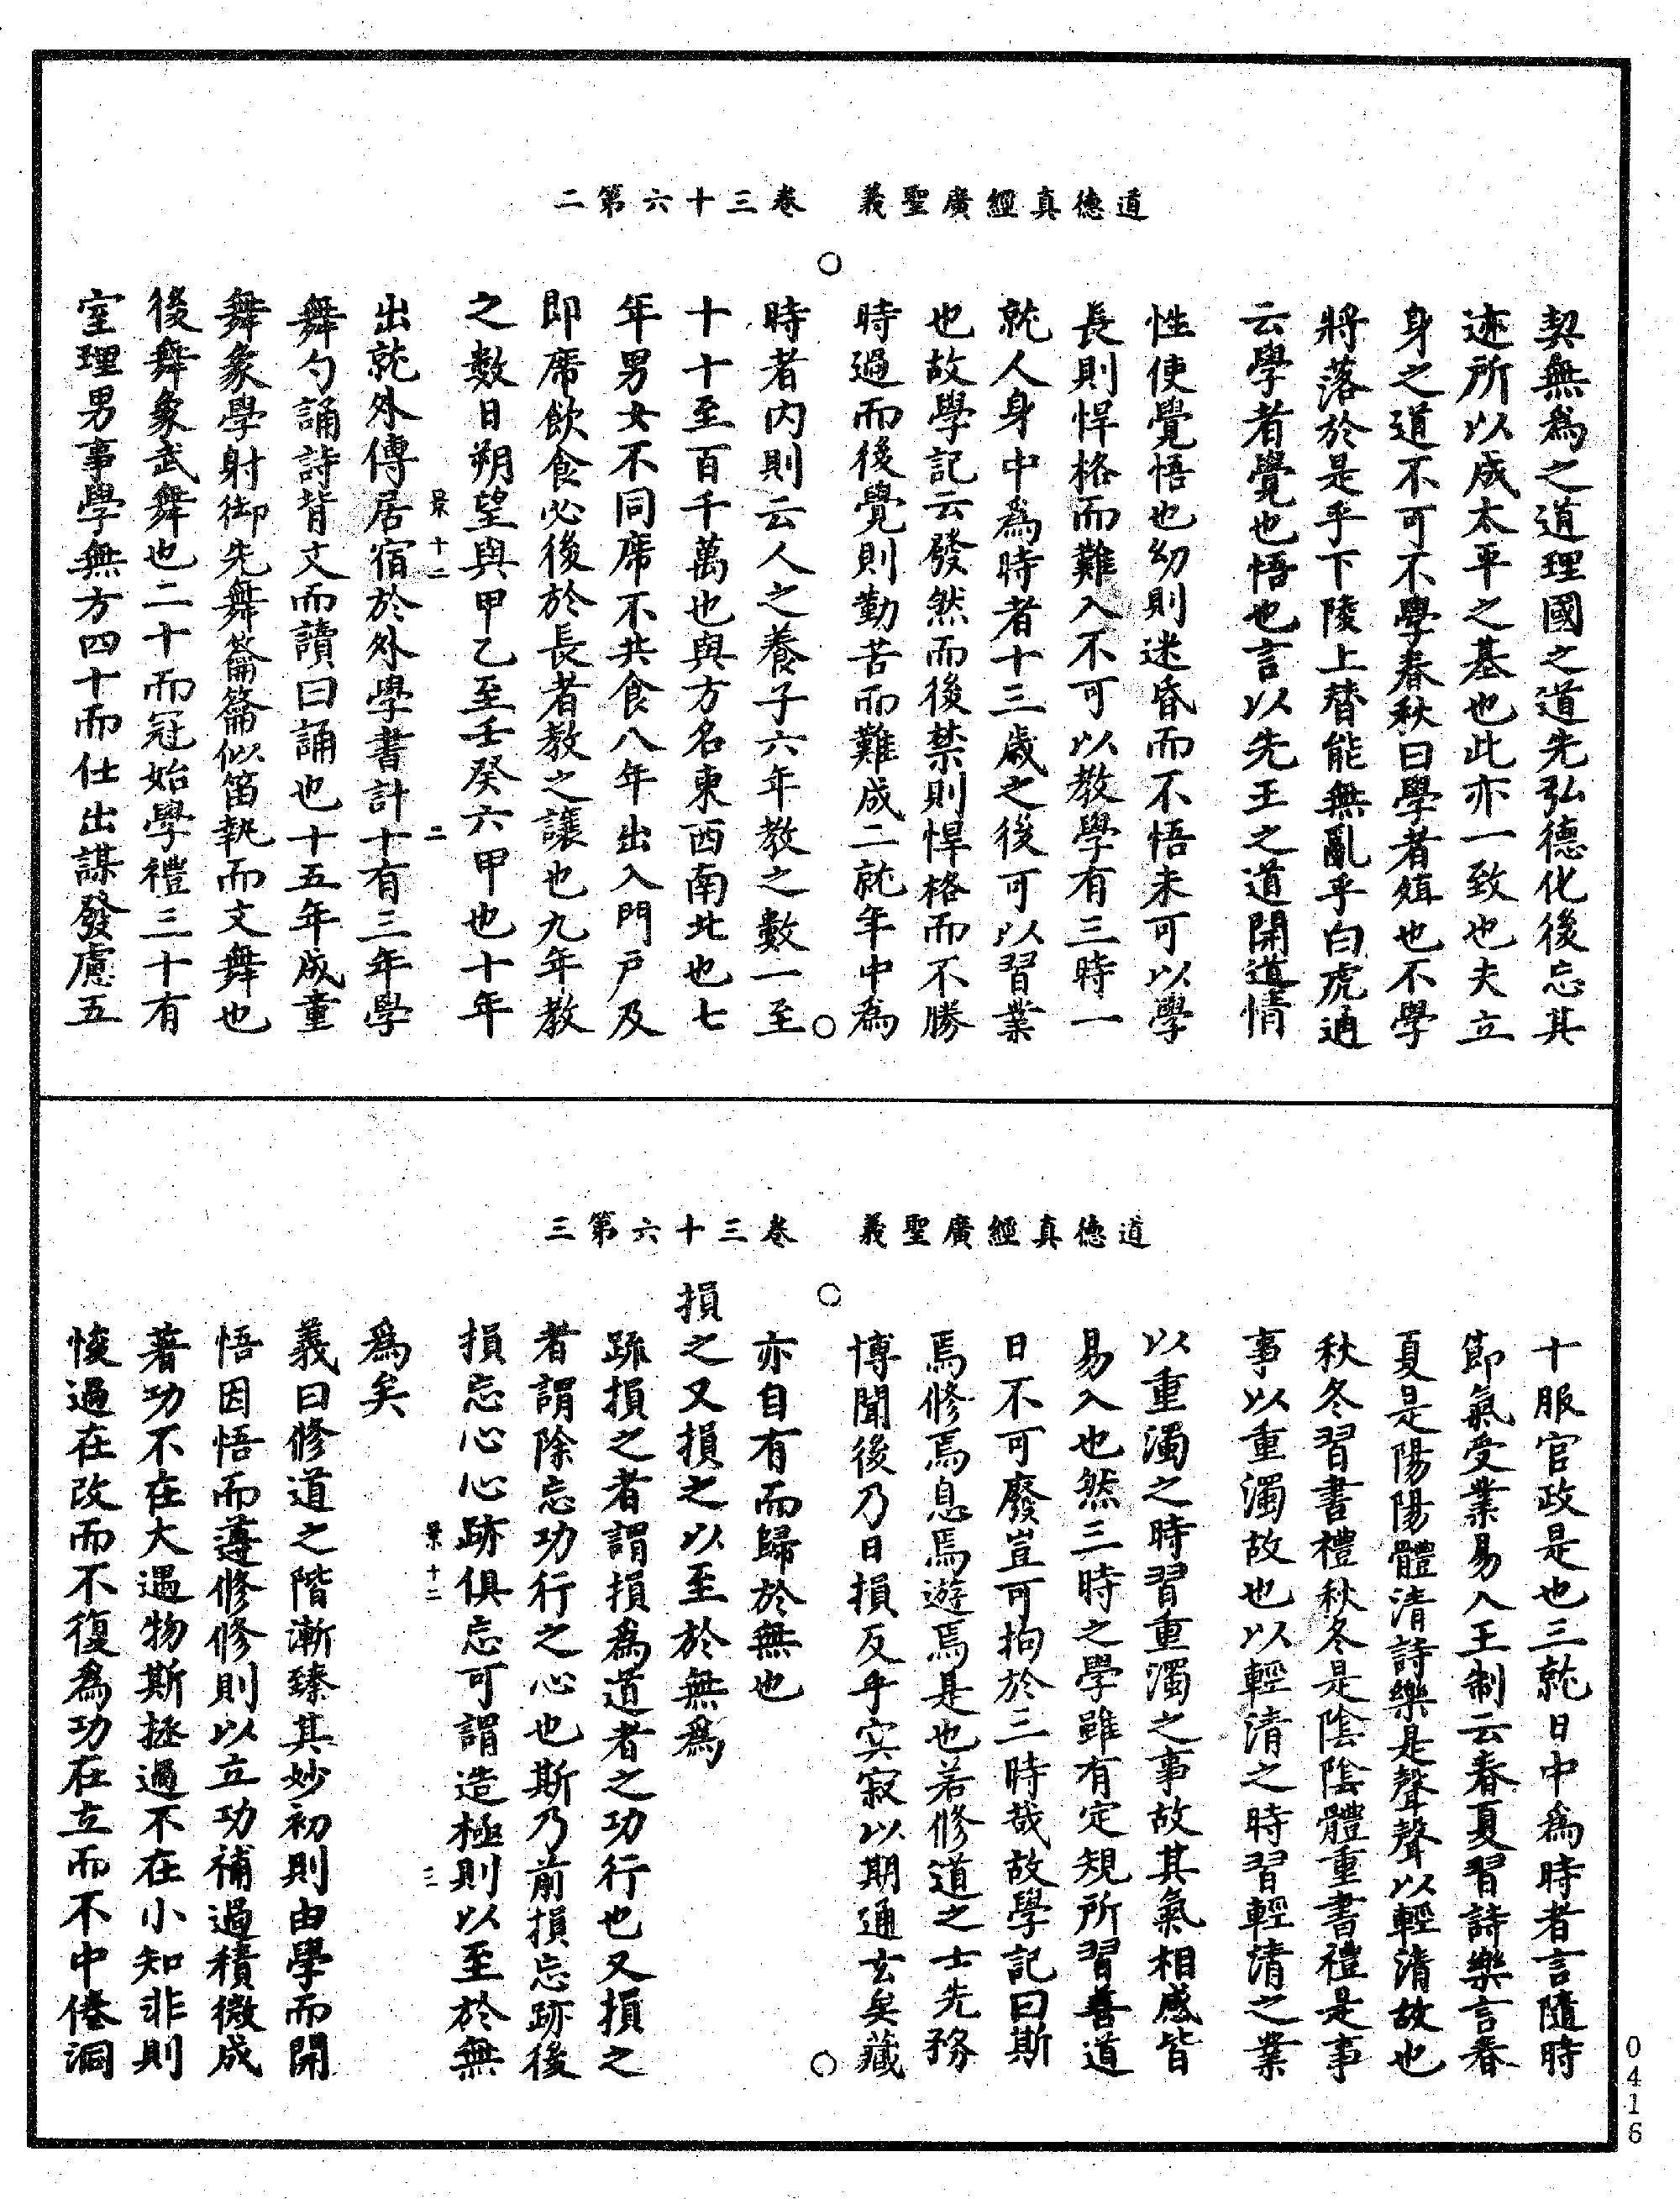 道德真經廣聖義　卷三十六第二
契無為之道理國之道先弘德化後忘其
迹所以成太平之基也此亦一致也夫立
身之道不可不學春秋曰學者殖也不學
將落於是乎下陵上替能無亂乎白虎通
云學者覺也悟也言以先王之道開導情
性使覺悟也幼則迷昏而不悟未可以學
長則悍格而難入不可以教學有三時一
就人身中為時者十三歲之後可以習業
也故學記云發然而後禁則悍格而不勝
時過而後覺則勤苦而難成二就年中為
時者內則云人之養子六年教之數一至
十十至百千萬也與方名東西南北也七
年男女不同席不共食八年出入門戶及
即席飲食必後於長者教之讓也九年教
之數日朔望與甲乙至壬癸六甲也十年
景十二　二
出就外傳居宿於外學書計十有三年學
舞勺誦詩背文而讀曰誦也十五年成童
舞象學射御先舞籥籥似笛執而文舞也
後舞象武舞也二十而冠始學禮三十有
室理男事學無方四十而仕出謀發慮五
道德真經廣聖義　卷三十六第三
十服官政是也三就日中為時者言隨時
節氣受業易入王制云春夏習詩樂言春
夏是陽陽體清詩樂是聲聲以輕清故也
秋冬習書禮秋冬是陰陰體重書禮是事
事以重濁故也以輕清之時習輕清之業
以重濁之時習重濁之事故其氣相感皆
易入也然三時之學雖有定規所習善道
日不可廢豈可拘於三時哉故學記曰斯
焉修焉息焉遊焉是也若修道之士先務
博聞後乃日損反乎㝠寂以期通玄矣藏
亦自有而歸於無也
損之又損之以至於無為
疏損之者謂損為道者之功行也又損之
者謂除忘功行之心也斯乃前損忘跡後
損忘心心跡俱忘可謂造極則以至於無
景十二　三
為矣
義曰修道之階漸臻其妙初則由學而開
悟因悟而遵修修則以立功補過積微成
著功不在大遇物斯拯過不在小知非則
悛過在改而不復為功在立而不中倦洞
0416